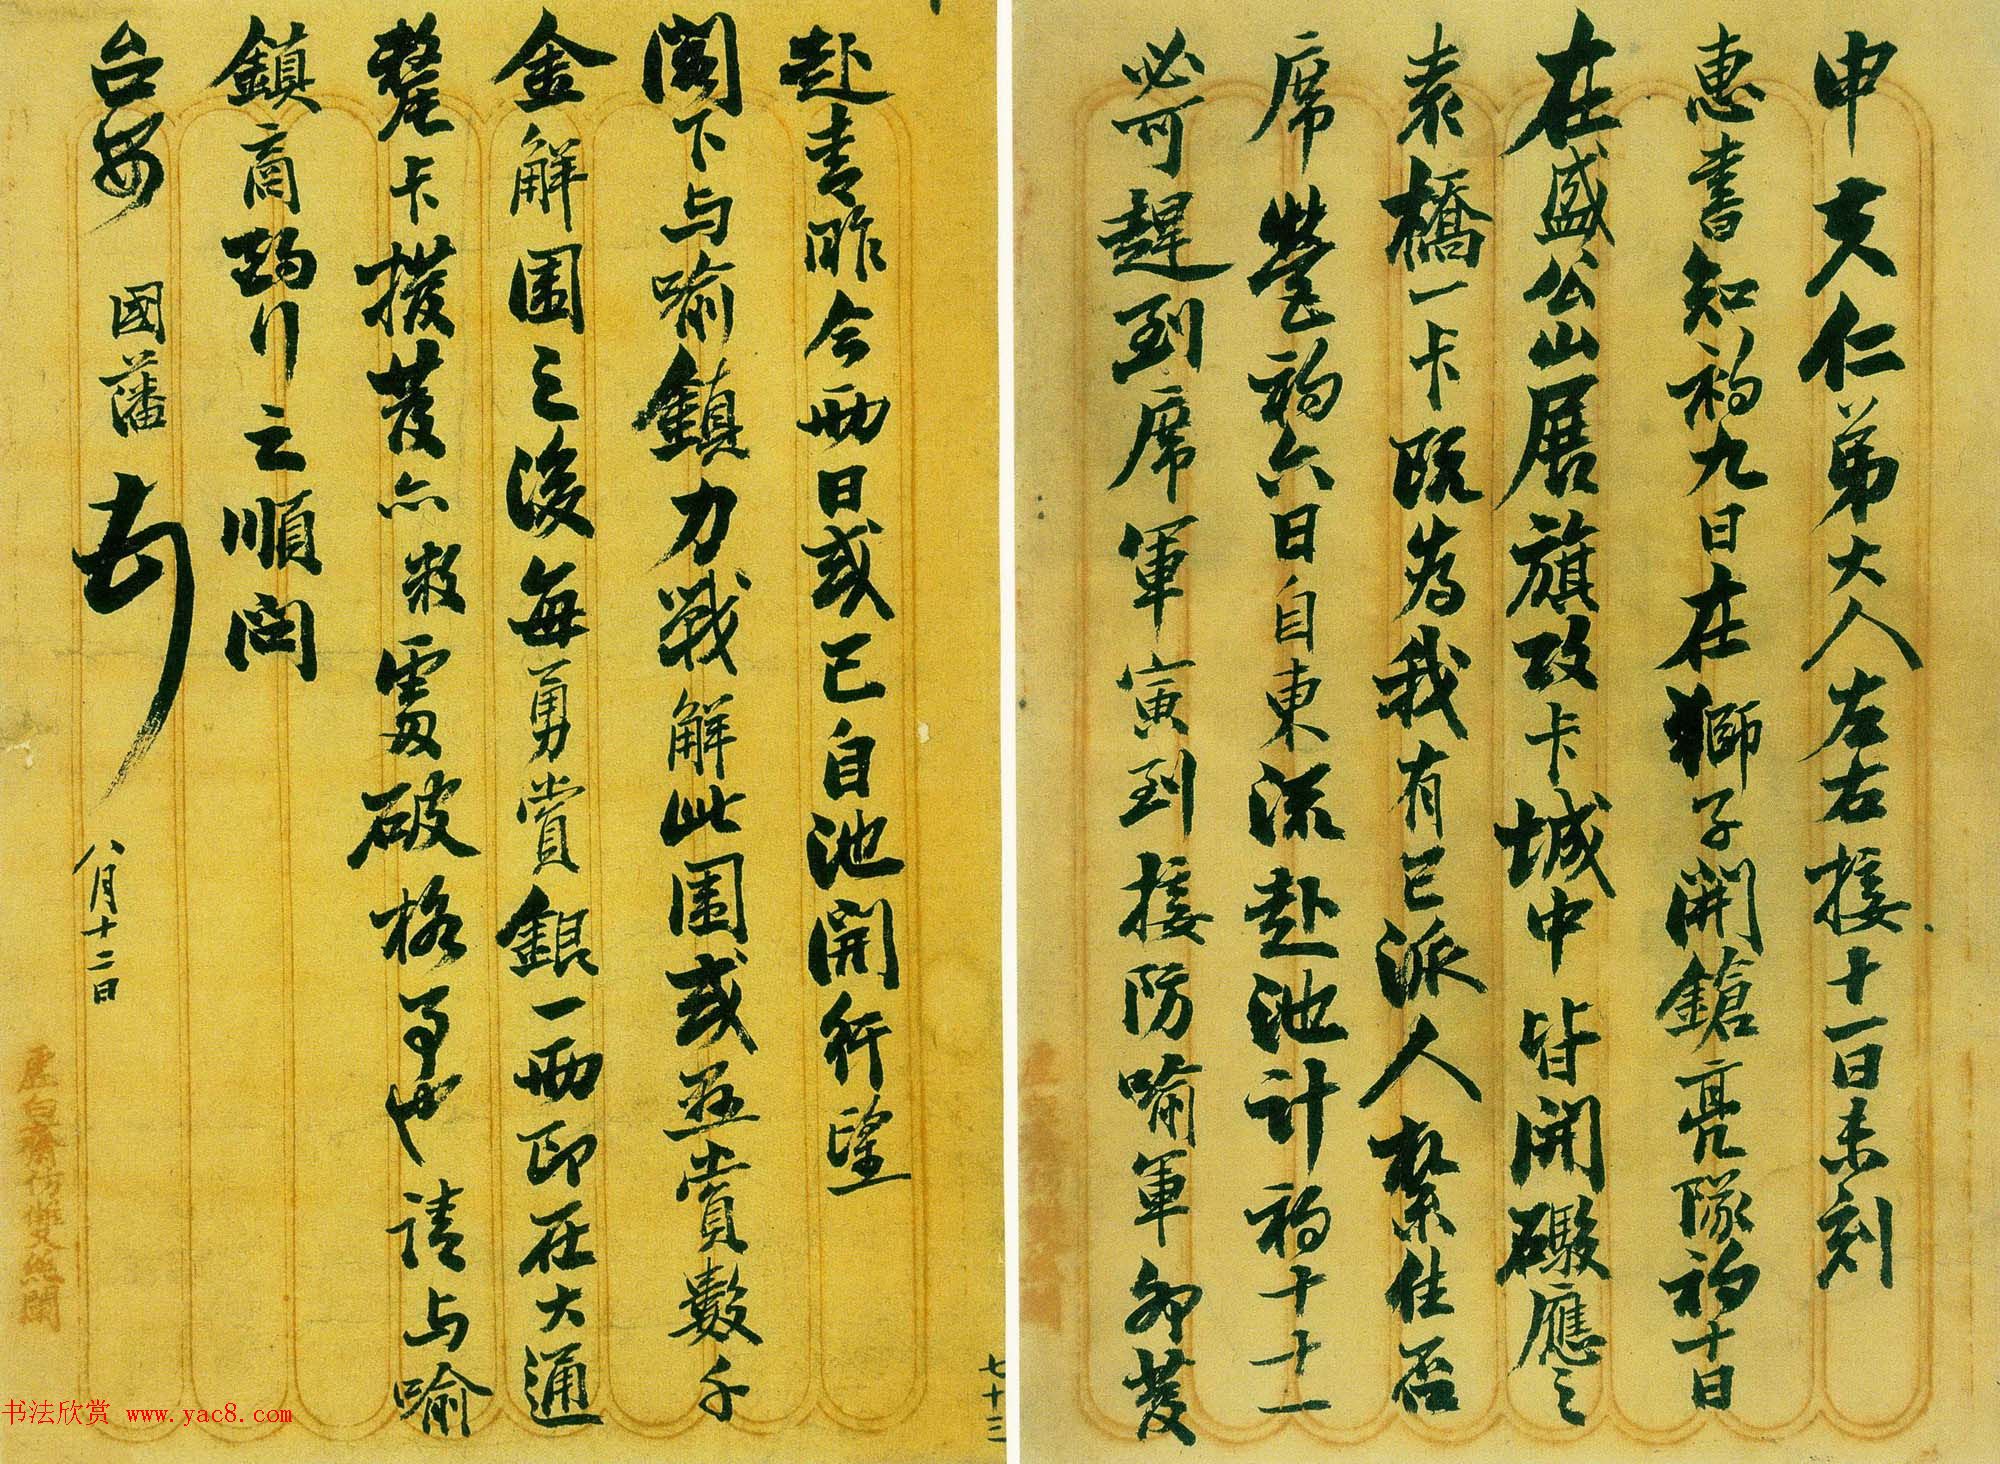 申夫仁弟大人左右接十一日未刻
惠書知初九日在獅子開鎗亮隊初十日
在盛公山展旗攻卡城中皆開礮應之
袁橋一卡既為我有已派人紮住否
席營初六日自東流赴池計初十十一
必可趕到席軍寅到接防喻軍卯發
赴青昨今兩日或已自池開行望
閣下與喻鎮力戰解此圍或並賞數千
金解圍之後每勇賞銀一兩即在大通
釐卡撥發亦救急破格事也請與喻
鎮商酌行之順問
台安 國藩 頓首 八月十二日
七十三
虛白齋仿
書法欣赏 www.yac8.com